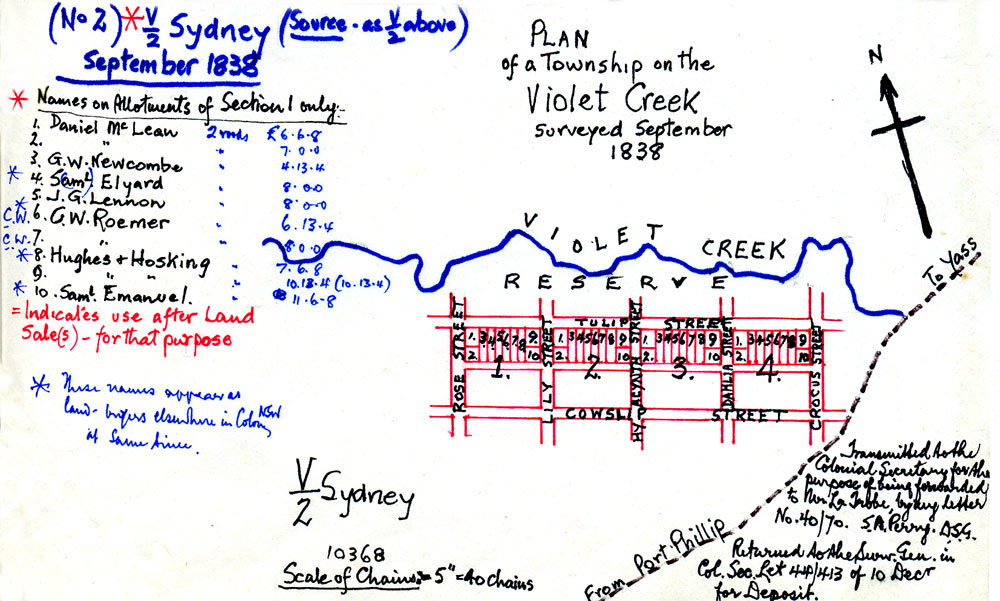 (No 2) * V/2 Sydney (Source - as V/2 above)
September 1838
* Names on Allotments of Section 1 only:-
1. Daniel McLean 2 roods £6.6.8
2. " " 7.0.0
3. G.W. Newcombe " 4.13.4
* 4. Saml. Elyard " 8.0.0
* 5. J.G. Lennon " 8.0.0
C.W. 6. C.W. Roemer " 6.13.4
C.W. 7. " " 8.0.0
* 8. Hughes + Hosking " 7.6.8
9. " " " 10.13.4 (10.13.4)
* 10. Saml. Emanuel. " 11.6.8
= Indicates use after Land
Sale(s) - for that purpose
* These names appear as
land-buyers elsewhere in Colony NSW
at same time.
PLAN
of a Township on the
Violet Creek
surveyed September
1838
N
VIOLET CREEK
RESERVE
To Yass
TULIP STREET
ROSE STREET
LILY STREET
HYACYNTH STREET
DAHLIA STREET
CROCUS STREET
1. 3 4 5 6 7 8 9
2. 10
1.
1. 3 4 5 6 7 8 9
2. 10
2.
1. 3 4 5 6 7 8 9
2. 10
3.
1. 3 4 5 6 7 8 9
2. 10
4.
COWSLIP STREET
From Port Phillip
V/2 Sydney
10368
Scale of Chains = 5" = 40 chains
Transmitted to the
Colonial Secretary for the
purpose of being forwarded
to Mr. La Trobe, by my letter
No. 40/70. S.A. Perry. D.S.G.
Returned to the Surv. Gen. in
Col. Sec. Let 44/413 of 10 Decr
for Deposit.